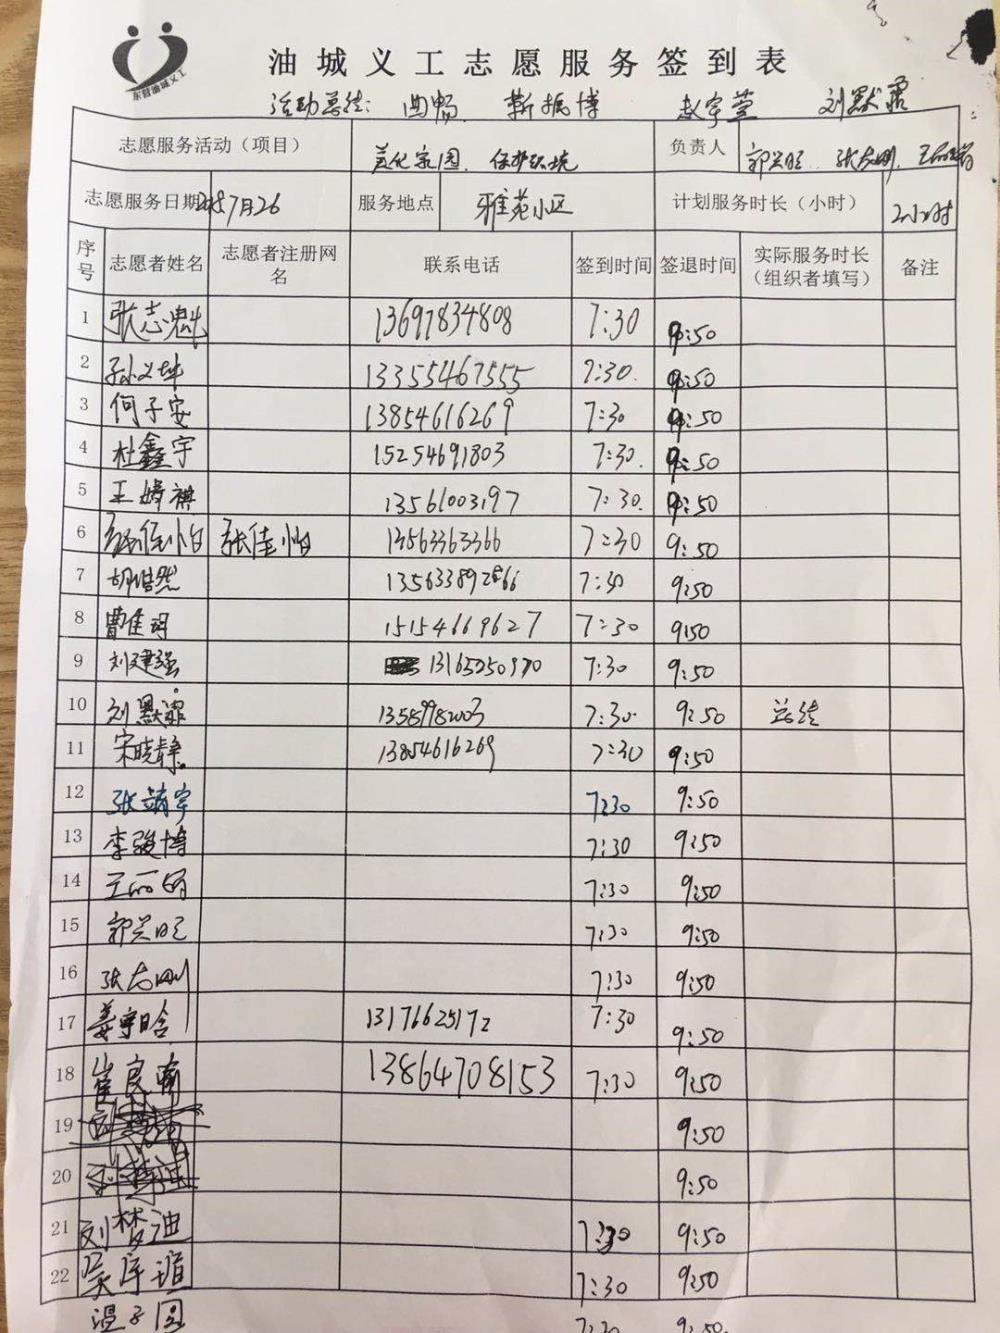 东营油城义工
油城义工志愿服务签到表
活动总结: 曲畅 靳振博 赵宇萱 刘默霏
志愿服务活动（项目） 美化家园、保护环境 负责人 郭兰旺 张志刚
志愿服务日期 7月26 服务地点 雅苑小区 计划服务时长（小时） 2小时
序号 志愿者姓名 志愿者注册网名 联系电话 签到时间 签退时间 实际服务时长（组织者填写） 备注
1 张志魁 13697834808 7:30 9:50
2 孙义坤 13355467555 7:30. 9:50
3 何子安 13854616269 7:30 9:50
4 杜鑫宇 15254691803 7:30. 9:50
5 王婧祺 13561003197 7:30. 9:50
6 张佳怡 张佳怡 13563363366 7:30 9:50
7 胡浩然 135633892866 7:30 9:50
8 曹佳 15154669627 7:30 9:50
9 刘建强 13165250970 7:30 9:50
10 刘默霏 13589982003 7:30. 9:50 总结
11 宋晓静 13854616269 7:30 9:50
12 张靖宇 7:30 9:50
13 李骏博 7:30 9:50
14 王丽娟 7:30 9:50
15 郭兰旺 7:30 9:50
16 张志刚 7:30 9:50
17 姜宇晗 13176625172 7:30 9:50
18 崔良瑜 13864708153 7:30 9:50
19 9:50
20 9:50
21 刘梦迪 7:30 9:50
22 7:30 9:50
温子圆 7:30 9:50